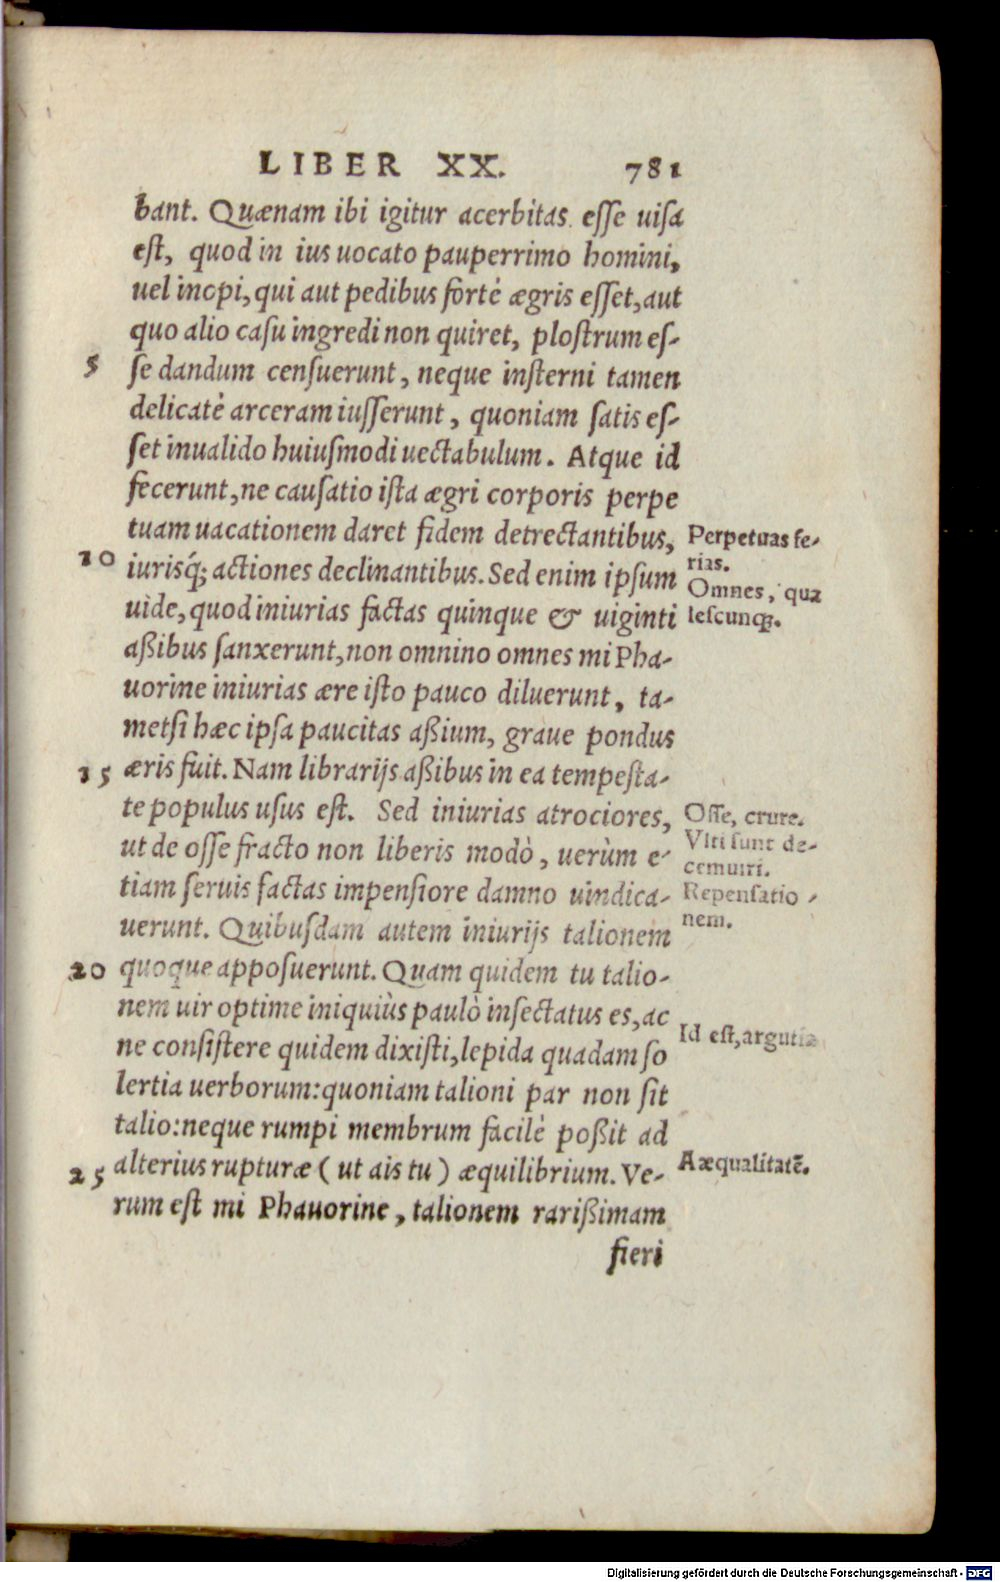 LIBER XX. 781
bant. Quænam ibi igitur acerbitas esse uisa
est, quod in ius uocato pauperrimo homini,
uel inopi, qui aut pedibus fortè ægris esset, aut
quo alio casu ingredi non quiret, plostrum es-
5 se dandum censuerunt, neque insterni tamen
delicatè arceram iusserunt, quoniam satis es-
set inualido huiusmodi uectabulum. Atque id
fecerunt, ne causatio ista ægri corporis perpe
tuam uacationem daret fidem detrectantibus,
Perpetuas fe-
rias.
10 iurisq́; actiones declinantibus. Sed enim ipsum
Omnes, qua
lescunq;.
uide, quod iniurias factas quinque & uiginti
aßibus sanxerunt, non omnino omnes mi Pha-
uorine iniurias ære isto pauco diluerunt, ta-
metsi hæc ipsa paucitas aßium, graue pondus
15 æris fuit. Nam librarijs aßibus in ea tempesta-
te populus usus est. Sed iniurias atrociores,
Osse, crure.
Vlti sunt de-
cemuiri.
ut de osse fracto non liberis modò, uerùm e-
tiam seruis factas impensiore damno uindica-
Repensatio-
nem.
uerunt. Quibusdam autem iniurijs talionem
20 quoque apposuerunt. Quam quidem tu talio-
nem uir optime iniquiùs paulò insectatus es, ac
Id est, argutia
ne consistere quidem dixisti, lepida quadam so
lertia uerborum: quoniam talioni par non sit
talio: neque rumpi membrum facilè poßit ad
25 alterius rupturæ (ut ais tu) æquilibrium. Ve-
Aæqualitatē.
rum est mi Phauorine, talionem rarißimam
fieri
Digitalisierung gefördert durch die Deutsche Forschungsgemeinschaft - DFG